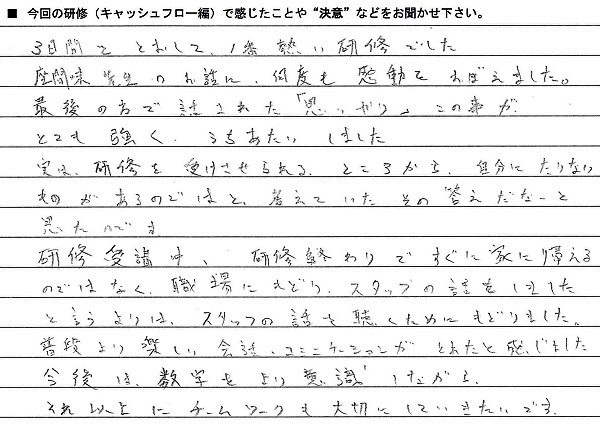 ■ 今回の研修（キャッシュフロー編）で感じたことや“決意”などをお聞かせ下さい。
3日間をとおして、1番熱い研修でした
座間味先生のお話に、何度も感動をおぼえました。
最後の方で話された「思いやり」この事が
とても強く、うちあたいしました
実は、研修を受けさせられる、ところから、自分にたりない
ものがあるのではと、考えていたその答えだなーと
思たのです
研修受講中、研修終わりですぐに家に帰える
のではなく、職場にもどり、スタッフの話をしました
と言うよりは、スタッフの話を聴くためにもどりました。
普段より楽しい会話、コミュニケーションがとれたと感じました
今後は、数字をより意識しながら、
それ以上にチームワークも大切にしていきたいです。